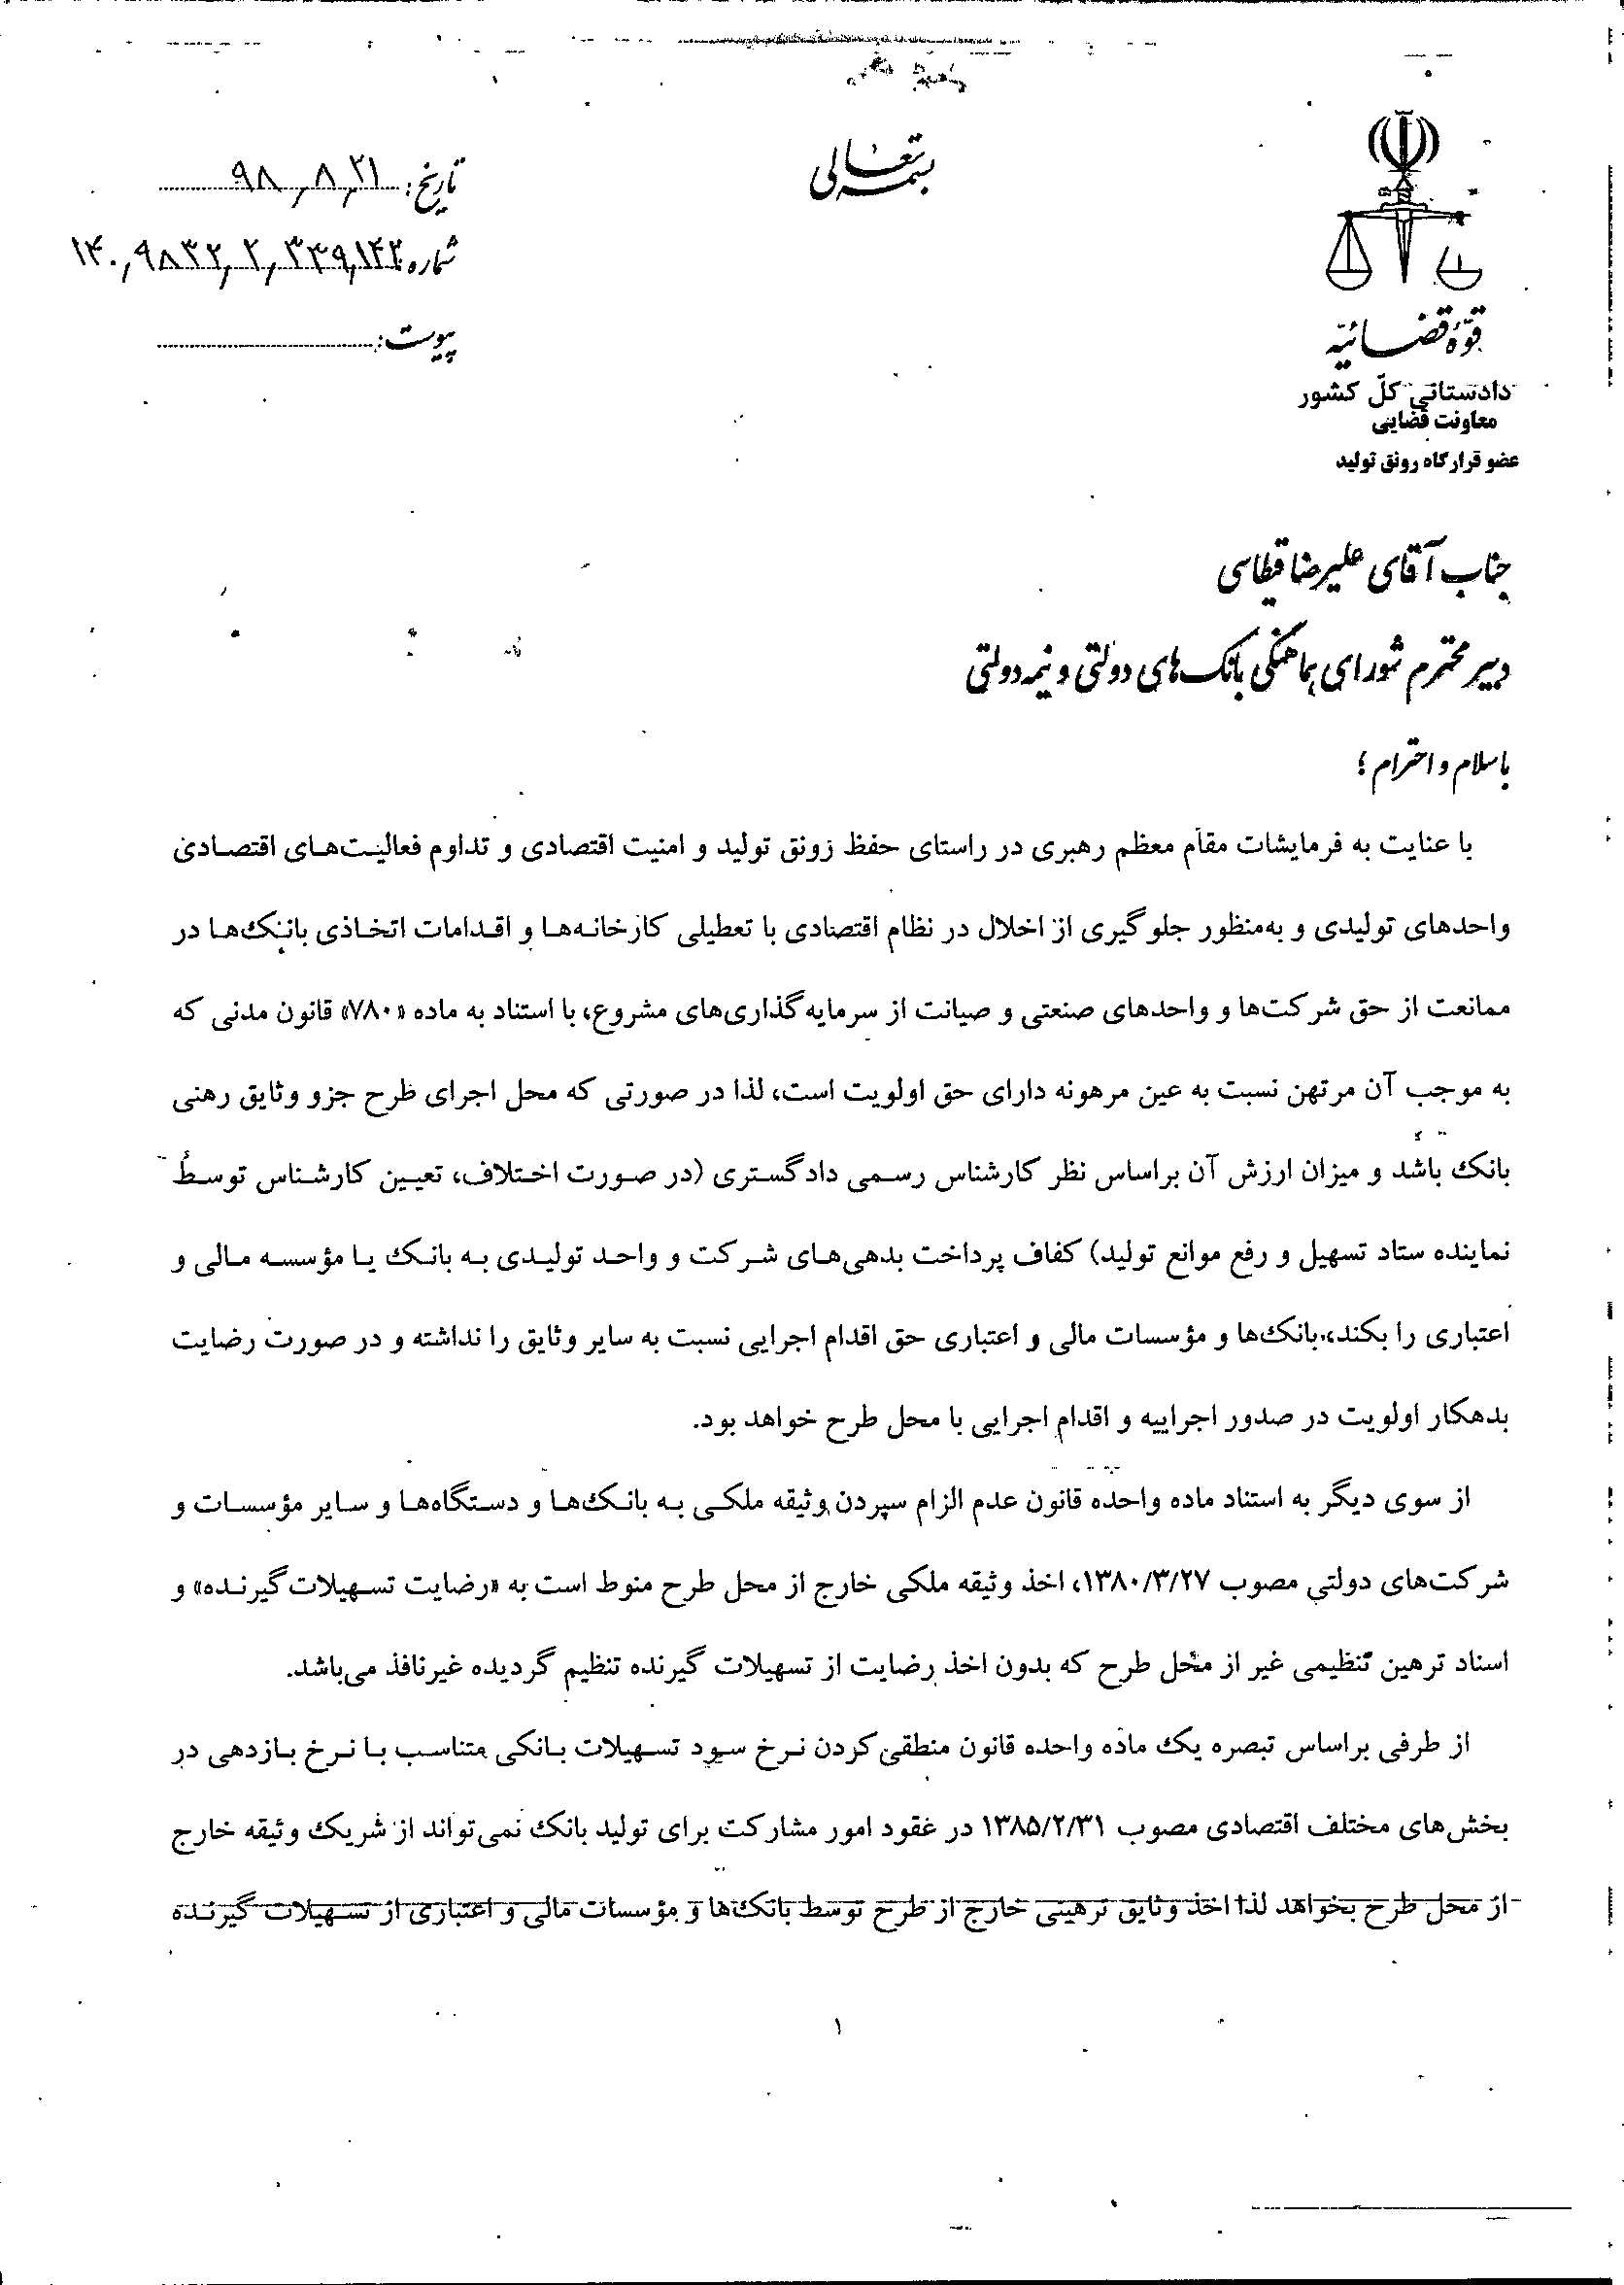 بسمه تعالی
تاریخ: ۹۸٫۸٫۲۱
شماره: ۱۴۰٫۹۸۳۲٫۲٫۳۳۹٫۱۴۲
پیوست:
قوّهٔ قضائیّه
دادستانی کلّ کشور
معاونت قضایی
عضو قرارگاه رونق تولید
جناب آقای علیرضا قیطاسی
دبیر محترم شورای هماهنگی بانک‌های دولتی و نیمه دولتی
با سلام و احترام ؛
با عنایت به فرمایشات مقام معظم رهبری در راستای حفظ رونق تولید و امنیت اقتصادی و تداوم فعالیت‌های اقتصادی
واحدهای تولیدی و به‌منظور جلوگیری از اخلال در نظام اقتصادی با تعطیلی کارخانه‌ها و اقدامات اتخاذی بانک‌ها در
ممانعت از حق شرکت‌ها و واحدهای صنعتی و صیانت از سرمایه‌گذاری‌های مشروع، با استناد به ماده «۷۸۰» قانون مدنی که
به موجب آن مرتهن نسبت به عین مرهونه دارای حق اولویت است، لذا در صورتی که محل اجرای طرح جزو وثایق رهنی
بانک باشد و میزان ارزش آن براساس نظر کارشناس رسمی دادگستری (در صورت اختلاف، تعیین کارشناس توسط
نماینده ستاد تسهیل و رفع موانع تولید) کفاف پرداخت بدهی‌های شرکت و واحد تولیدی به بانک یا مؤسسه مالی و
اعتباری را بکند، بانک‌ها و مؤسسات مالی و اعتباری حق اقدام اجرایی نسبت به سایر وثایق را نداشته و در صورت رضایت
بدهکار اولویت در صدور اجراییه و اقدام اجرایی با محل طرح خواهد بود.
از سوی دیگر به استناد ماده واحده قانون عدم الزام سپردن وثیقه ملکی به بانک‌ها و دستگاه‌ها و سایر مؤسسات و
شرکت‌های دولتی مصوب ۱۳۸۰/۳/۲۷، اخذ وثیقه ملکی خارج از محل طرح منوط است به «رضایت تسهیلات‌گیرنده» و
اسناد ترهین تنظیمی غیر از محل طرح که بدون اخذ رضایت از تسهیلات گیرنده تنظیم گردیده غیرنافذ می‌باشد.
از طرفی براساس تبصره یک ماده واحده قانون منطقی کردن نرخ سود تسهیلات بانکی متناسب با نرخ بازدهی در
بخش‌های مختلف اقتصادی مصوب ۱۳۸۵/۲/۳۱ در عقود امور مشارکت برای تولید بانک نمی‌تواند از شریک وثیقه خارج
از محل طرح بخواهد لذا اخذ وثایق ترهینی خارج از طرح توسط بانک‌ها و مؤسسات مالی و اعتباری از تسهیلات گیرنده
۱